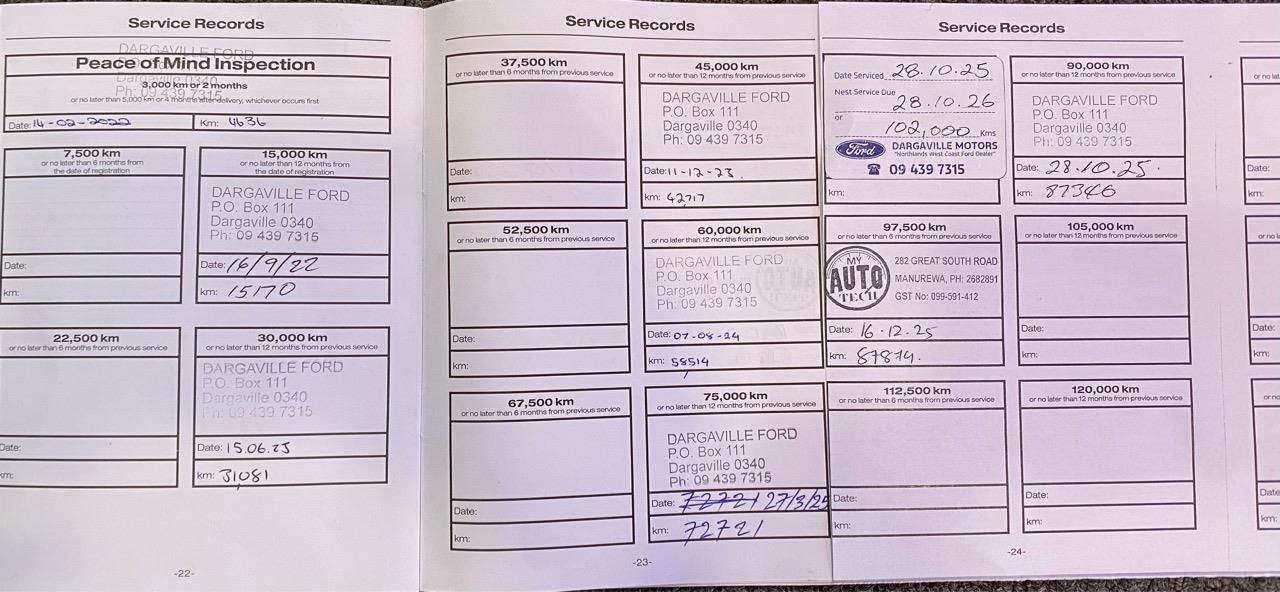 Service Records
DARGAVILLE FORD
Peace of Mind Inspection
Dargaville 0340
3,000 km or 2 months
Ph: 09 439 7315
or no later than 5,000 km or 4 months after delivery, whichever occurs first
Date: 14-02-2022 Km: 4636
7,500 km
or no later than 6 months from
the date of registration
Date:
km:
15,000 km
or no later than 12 months from
the date of registration
DARGAVILLE FORD
P.O. Box 111
Dargaville 0340
Ph: 09 439 7315
Date: 16/9/22
km: 15170
22,500 km
or no later than 6 months from previous service
Date:
km:
30,000 km
or no later than 12 months from previous service
DARGAVILLE FORD
P.O. Box 111
Dargaville 0340
Ph: 09 439 7315
Date: 15.06.23
km: 31081
-22-
Service Records
37,500 km
or no later than 6 months from previous service
Date:
km:
45,000 km
or no later than 12 months from previous service
DARGAVILLE FORD
P.O. Box 111
Dargaville 0340
Ph: 09 439 7315
Date: 11-12-23
km: 42717
52,500 km
or no later than 6 months from previous service
Date:
km:
60,000 km
or no later than 12 months from previous service
DARGAVILLE FORD
P.O. Box 111
Dargaville 0340
Ph: 09 439 7315
Date: 07-08-24
km: 58514
67,500 km
or no later than 6 months from previous service
Date:
km:
75,000 km
or no later than 12 months from previous service
DARGAVILLE FORD
P.O. Box 111
Dargaville 0340
Ph: 09 439 7315
Date: 72721 27/3/25
km: 72721
-23-
Service Records
Date Serviced 28.10.25
Nest Service Due
28.10.26
or
102,000 Kms
Ford DARGAVILLE MOTORS
"Northlands West Coast Ford Dealer"
☎ 09 439 7315
km:
90,000 km
or no later than 12 months from previous service
DARGAVILLE FORD
P.O. Box 111
Dargaville 0340
Ph: 09 439 7315
Date: 28.10.25.
km: 87346
97,500 km
or no later than 6 months from previous service
MY
AUTO
TECH
282 GREAT SOUTH ROAD
MANUREWA, PH: 2682891
GST No: 099-591-412
Date: 16.12.25
km: 87874.
105,000 km
or no later than 12 months from previous service
Date:
km:
112,500 km
or no later than 6 months from previous service
Date:
km:
120,000 km
or no later than 12 months from previous service
Date:
km:
-24-
Date:
km:
Date:
km:
Date
km: